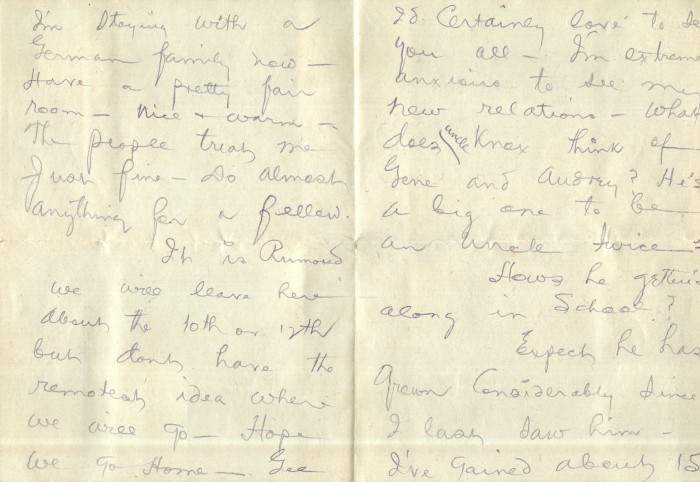 I'm staying with a
German family now —
Have a pretty fair
room — nice + warm —
The people treat me
Just fine — Do almost
anything for a fellow.
It is Rumored
we will leave here
about the 10th or 12th
but dont have the
remotest idea where
we will go — Hope
we go Home — Gee
I'd Certainly love to se
you all — I'm extreme
anxious to see my
new relations — What
does uncle Knox think of
Gene and Audrey? He's
a big one to be
an uncle twice
Hows he getting
along in School?
Expect he has
grown Considerably since
I last saw him —
I've gained about 15